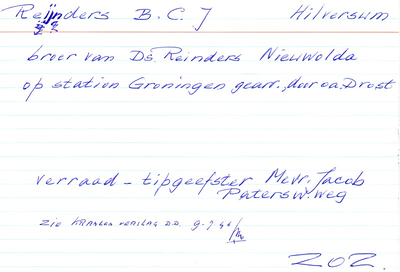 Reijnders B.C.J Hilversum
broer van Ds. Reinders Nieuwolda
op station Groningen gearr., door o.a. Drost
verraad - tipgeefster Mevr. Jacob
Patersw. weg
zie KRANTEN VERSLAG D.D. 9-7-46
ZOZ.